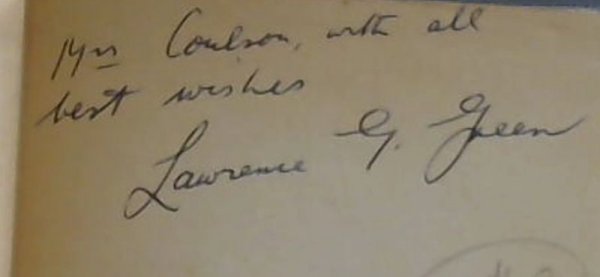 Mrs Coulson, with all
best wishes
Lawrence G. Green